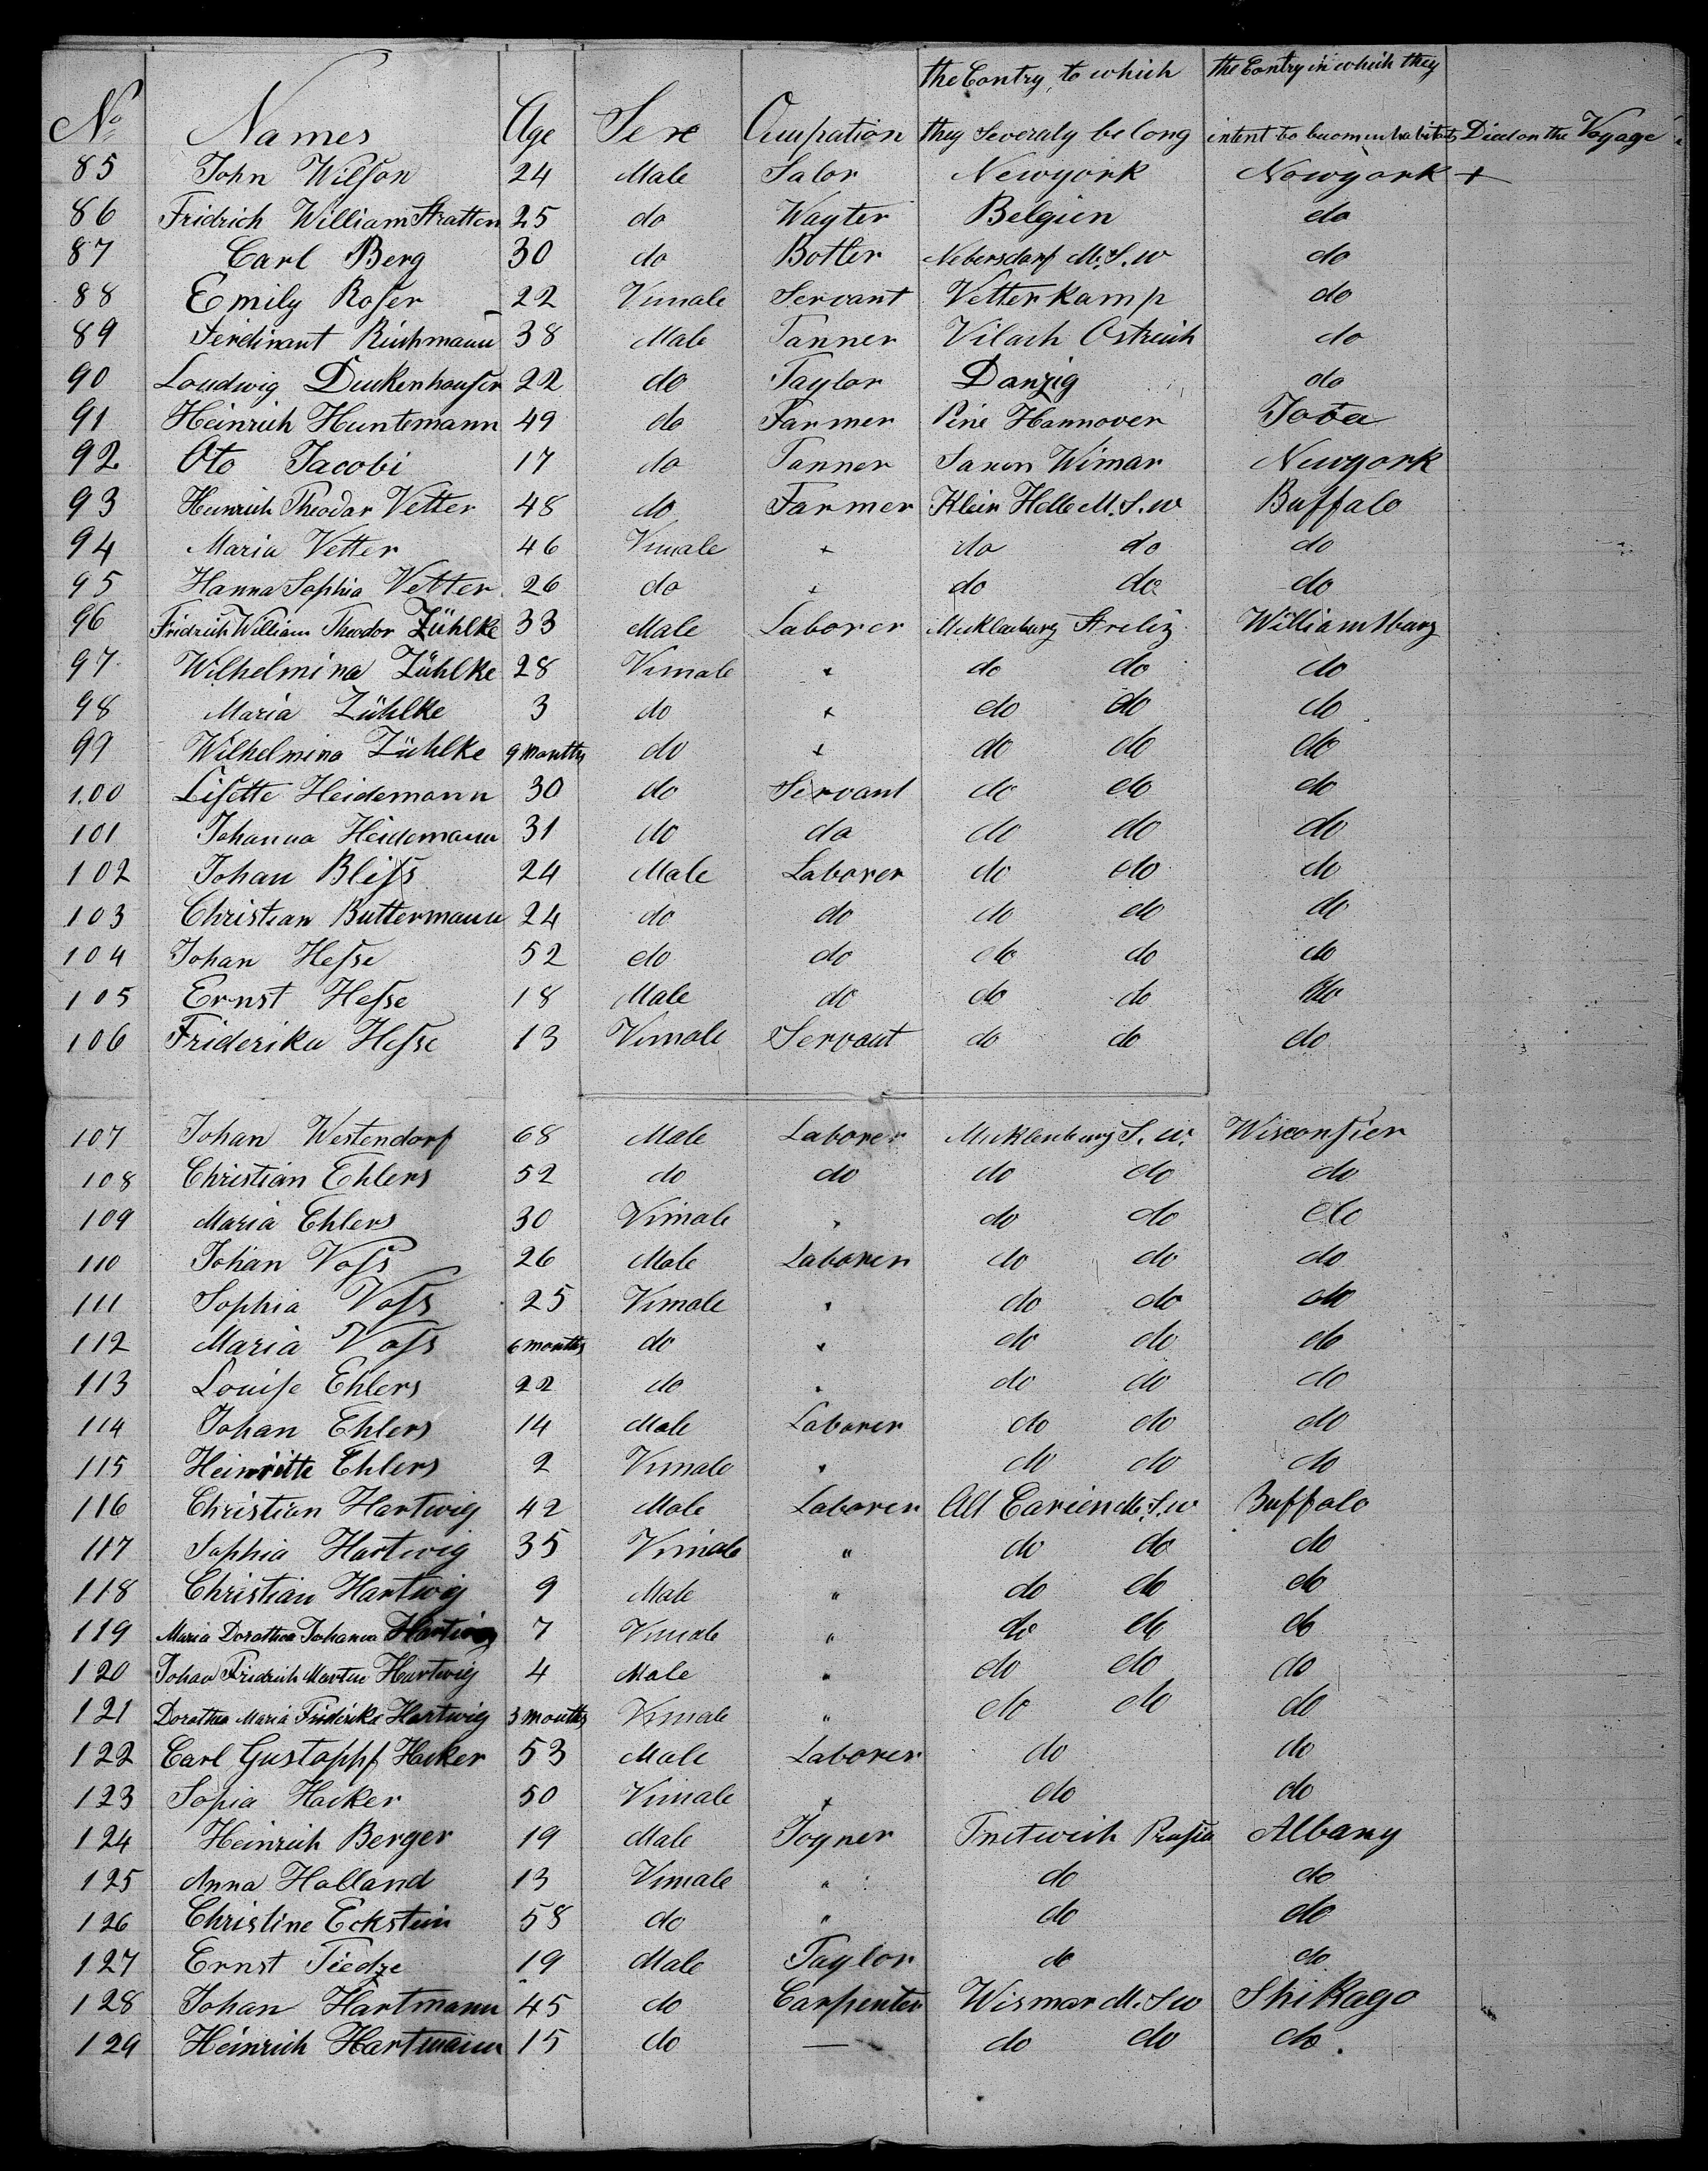 the Contry, to which the Contry in which they
No Names Age Sex Ocupration they Severaly belong intent to becom inhabitants Died on the Voyage
85 John Wilson 24 Male Salor Newyork Nowyork +
86 Fridrich William Stratten 25 do Wayter Belgien do
87 Carl Berg 30 do Botler Nebersdorf M.S.w do
88 Emily Roser 22 Vimale Servant Vetterkamp do
89 Ferdinant Richmann 38 Male Tanner Vilach Ostreich do
90 Loudwig Duckenhauser 22 do Taylor Danzig do
91 Heinrich Huntemann 49 do Farmer Peine Hannover
92 Oto Jacobi 17 do Tanner Saxen Wimar Newyork
93 Heinrich Theodor Vetter 48 do Farmer Klein Helle M.S.w Buffalo
94 Maria Vetter 46 Vimale + do do do
95 Hanna Sophia Vetter 26 do + do do do
96 Fridrich William Theodor Zühlke 33 Male Laborer Mecklenburg Streliz Williamsburg
97 Wilhelmina Zühlke 28 Vimale + do do do
98 Maria Zühlke 3 do + do do do
99 Wilhelmina Zühlke 9 months do + do do do
100 Lisette Heidemann 30 do Servant do do do
101 Johanna Heidemann 31 do do do do do
102 Johan Bliss 24 Male Laborer do do do
103 Christian Buttermann 24 do do do do do
104 Johan Hesse 52 do do do do do
105 Ernst Hesse 18 Male do do do do
106 Friderika Hesse 13 Vimale Servant do do do
107 Johan Westendorf 68 Male Laborer Mecklenburg S.w. Wisconsien
108 Christian Ehlers 52 do do do do do
109 Maria Ehlers 30 Vimale " do do do
110 Johan Voss 26 Male Laborer do do do
111 Sophia Voss 25 Vimale " do do do
112 Maria Voss 6 months do " do do do
113 Louise Ehlers 22 do " do do do
114 Johan Ehlers 14 Male Laborer do do do
115 Heinritte Ehlers 2 Vimale " do do do
116 Christian Hartwig 42 Male Laborer Alt Carien M.S.w Buffalo
117 Sophia Hartwig 35 Vimale " do do do
118 Christian Hartwig 9 Male " do do do
119 Maria Dorathea Johanna Hartwig 7 Vimale " do do do
120 Johan Fridrich Martin Hartwig 4 Male " do do do
121 Dorathea Maria Friderika Hartwig 3 months Vimale " do do do
122 Carl Gustappf Hacker 53 Male Laborer do do
123 Sopia Hacker 50 Vimale + do do
124 Heinrich Berger 19 Male Joyner Prusia Albany
125 Anna Holland 13 Vimale " do do
126 Christine Eckstein 58 do " do do
127 Ernst Tiedze 19 Male Taylor do do
128 Johan Hartmann 45 do Carpenter Wismar M.S.w Shikago
129 Heinrich Hartmann 15 do — do do do.